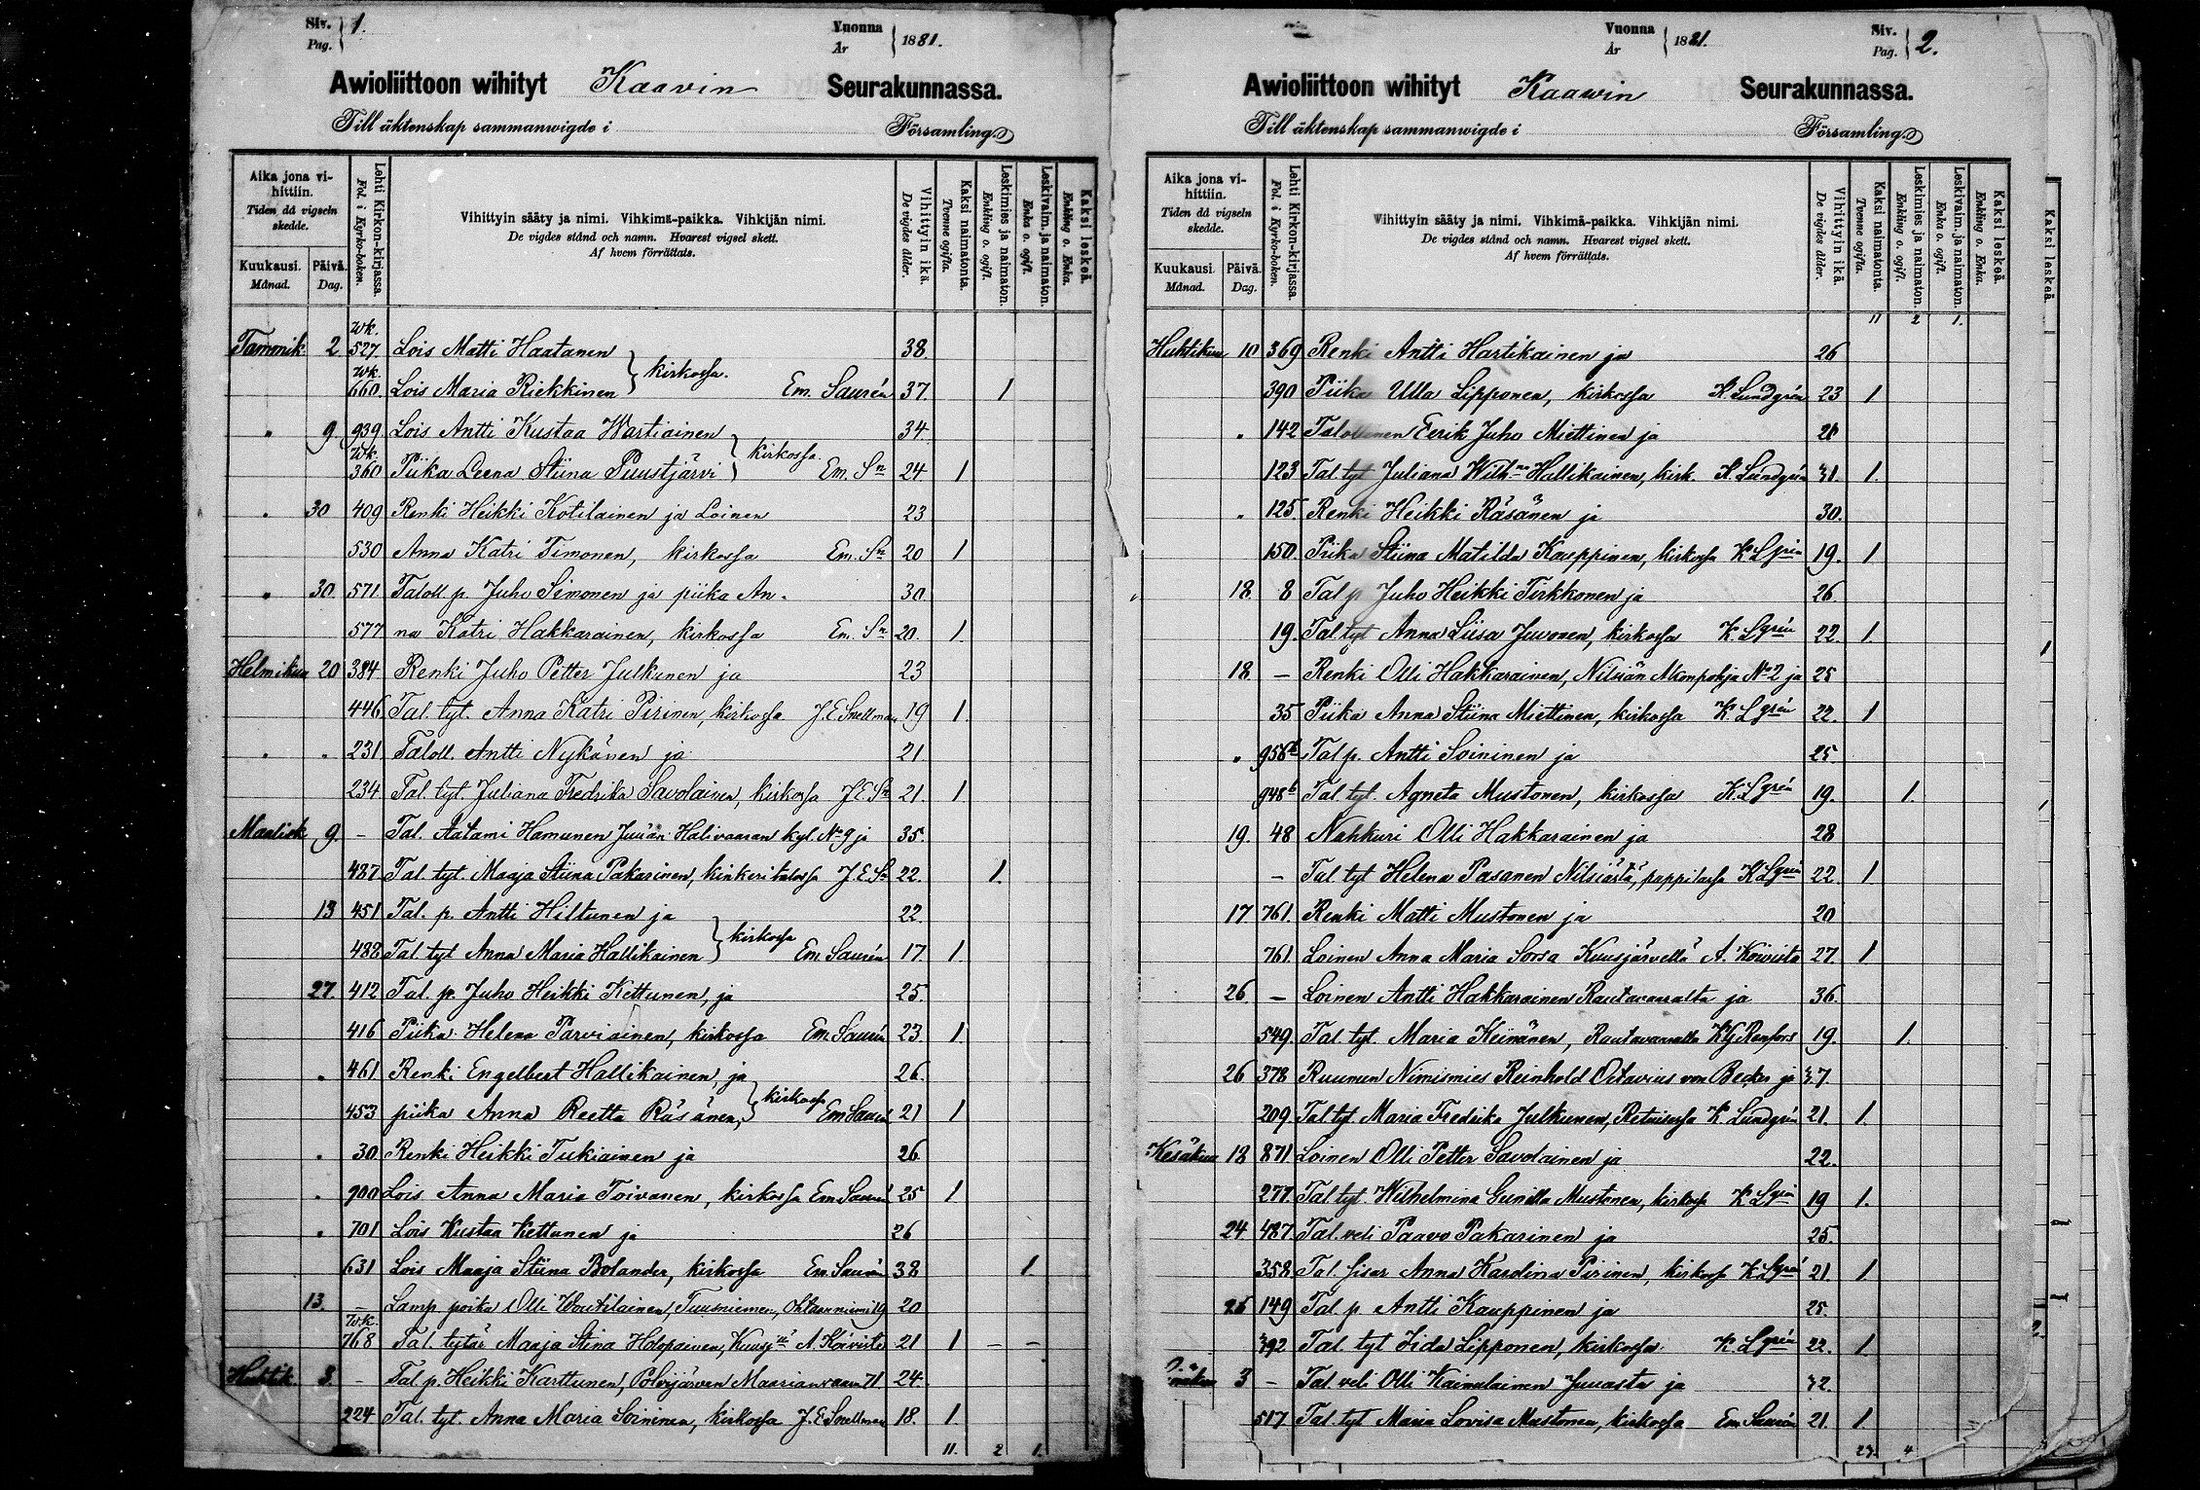 Siv. Pag. 1.
Vuonna År 1881.
Awioliittoon wihityt Kaavin Seurakunnassa.
Till äktenskap sammanwigde i Församling
Aika jona vihittiin. Tiden då vigseln skedde.
Kuukausi. Månad.
Päivä. Dag.
Lehti Kirkon-kirjassa. Fol. i Kyrko-boken.
Vihittyin sääty ja nimi. Vihkimä-paikka. Vihkijän nimi.
De vigdes stånd och namn. Hvarest vigsel skett.
Af hvem förrättats.
Vihittyin ikä. De vigdes ålder.
Kaksi naimatonta. Tvenne ogifta.
Leskimies ja naimaton. Enkling o. ogift.
Leskivaim. ja naimaton. Enka o. ogift.
Kaksi leskeä. Enkling o. Enka.
Tammik 2 wk. 527. Lois Matti Haatanen 38
wk. 660. Lois Maria Riekkinen } kirkossa. Em. Saurén 37. 1
" 9 939 Lois Antti Kustaa Wartiainen 34
Wk. 360 Piika Leena Stiina Puustjärvi } kirkossa. Em. Sn 24 1
" 30 409 Renki Heikki Kotilainen ja Loinen 23
530 Anna Katri Timonen, kirkossa Em. Sn 20 1
" 30 571 Taloll p. Juho Simonen ja piika An- 30
577 na Katri Hakkarainen, kirkossa Em. Sn 20. 1
Helmikuu 20 384 Renki Juho Petter Julkunen ja 23
446 Tal. tyt. Anna Katri Pirinen, kirkossa J.E. Snellman 19 1.
" " 231 Taloll. Antti Nykänen ja 21
234 Tal. tyt. Juliana Fredrika Savolainen, kirkossa J E Sn 21. 1
Maalisk 9. – Tal. Aatami Hamunen Juuan Halivaaran kyl. No 9 ja 35.
487 Tal. tyt. Maaja Stiina Pakarinen, kinkeritalossa J. E. Sn 22. 1.
13 451 Tal. p. Antti Hiltunen ja 22.
482 Tal. tyt Anna Maria Hallikainen } kirkossa Em. Saurén 17. 1.
27. 412 Tal. p. Juho Heikki Kettunen, ja 25.
416 Piika Helena Parviainen, kirkossa Em. Saurén 23. 1
" 461 Renki Engelbert Hallikainen, ja 26.
453 piika Anna Reetta Räsänen, } kirkossa Em Saurén 21 1
" 30 Renki Heikki Tukiainen ja 26
" 900 Lois Anna Maria Toivanen, kirkossa Em Saurén 25 1
" 701 Lois Kustaa Kettunen ja 26
631 Lois Maaja Stiina Bolander, kirkossa Em. Saurén 38 1.
13. – Lamp. poika Olli Woutilainen, Tuusniemen, 19 20
W.k. 768 Tal. tytär Maaja Stina Holopainen, A. Koivisto 21 1 – –
Huhtik 3. – Tal. p. Heikki Karttunen, Polvijärven Maarianvaara 71 24.
224 Tal. tyt. Anna Maria Soininen, kirkossa J. E. Snellman 18. 1.
11. 2 1.
Vuonna År 1881.
Siv. Pag. 2.
Awioliittoon wihityt Kaawin Seurakunnassa.
Till äktenskap sammanwigde i Församling
Aika jona vihittiin. Tiden då vigseln skedde.
Kuukausi. Månad.
Päivä. Dag.
Lehti Kirkon-kirjassa. Fol. i Kyrko-boken.
Vihittyin sääty ja nimi. Vihkimä-paikka. Vihkijän nimi.
De vigdes stånd och namn. Hvarest vigsel skett.
Af hvem förrättats.
Vihittyin ikä. De vigdes ålder.
Kaksi naimatonta. Tvenne ogifta.
Leskimies ja naimaton. Enkling o. ogift.
Leskivaim. ja naimaton. Enka o. ogift.
Kaksi leskeä. Enkling o. Enka.
Kaksi leskeä.
11 2 1.
Huhtikuu 10 369 Renki Antti Hartikainen ja 26
390 Piika Ulla Lipponen, kirkossa K. Lundgrén 23 1
" 142 Talollinen Eerik Juho Miettinen ja
123 Tal tyt Juliana Wilhna Hallikainen, kirk. K. Lundgrén 1.
" 125. Renki Heikki Räsänen ja 30.
150. Piika Stiina Matilda Kauppinen, kirkossa K. Lgrén 19. 1
18. 8 Tal p Juho Heikki Tirkkonen ja 26.
19. Tal. tyt Anna Liisa Juvonen, kirkossa K. Lgrén 22. 1
18. – Renki Olli Hakkarainen, Nilsiän No 2 ja 25
35 Piika Anna Stiina Miettinen, kirkossa K. Lgrén 22. 1
" 958b Tal p. Antti Soininen ja 25.
948b Tal. tyt. Agneta Mustonen, kirkossa K. Lgrén 19. 1.
19. 48 Nahkuri Olli Hakkarainen ja 28
– Tal tyt Helena Pasanen Nilsiästä, pappilassa K Lgrén 22. 1
17 761. Renki Matti Mustonen ja 20
761. Loinen Anna Maria Sorsa Kuusjärvellä A. Koivisto 27. 1.
26. – Loinen Antti Hakkarainen Rautavaaralta ja 36.
549. Tal. tyt. Maria Keinänen, Rautavaaralla Renfors 19. 1.
26 378 Ruunun Nimismies Reinhold Octavius von Becker ja 37.
209 Tal tyt. Maria Fredrika Julkunen, K. Lundgrén 21. 1.
Kesäkuu 18 871 Loinen Olli Petter Savolainen ja 22.
277. Tal tyt. Wilhelmina Gunilla Mustonen, kirkossa K. Lgrén 19 1.
24. 487. Tal. veli Paavo Pakarinen ja 25.
358. Tal. sisar Anna Karolina Pirinen, kirkossa K Lgrén 21. 1
25 149 Tal p Antti Kauppinen ja 25.
392 Tal. tyt Iida Lipponen, kirkossa. K. Lgrén 22. 1.
3 – Tal. veli Olli Kainulainen Juuasta ja 32.
517. Tal. tyt Maria Lovisa Mustonen, kirkossa Em. Saurén 21. 1.
23. 4